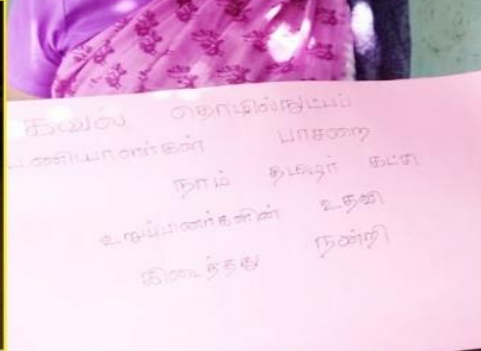 தகவல் தொழில்நுட்பப்
பணியாளர்கள் பாசறை
நாம் தமிழர் கட்சி
உறுப்பினர்களின் உதவி
கிடைத்தது நன்றி